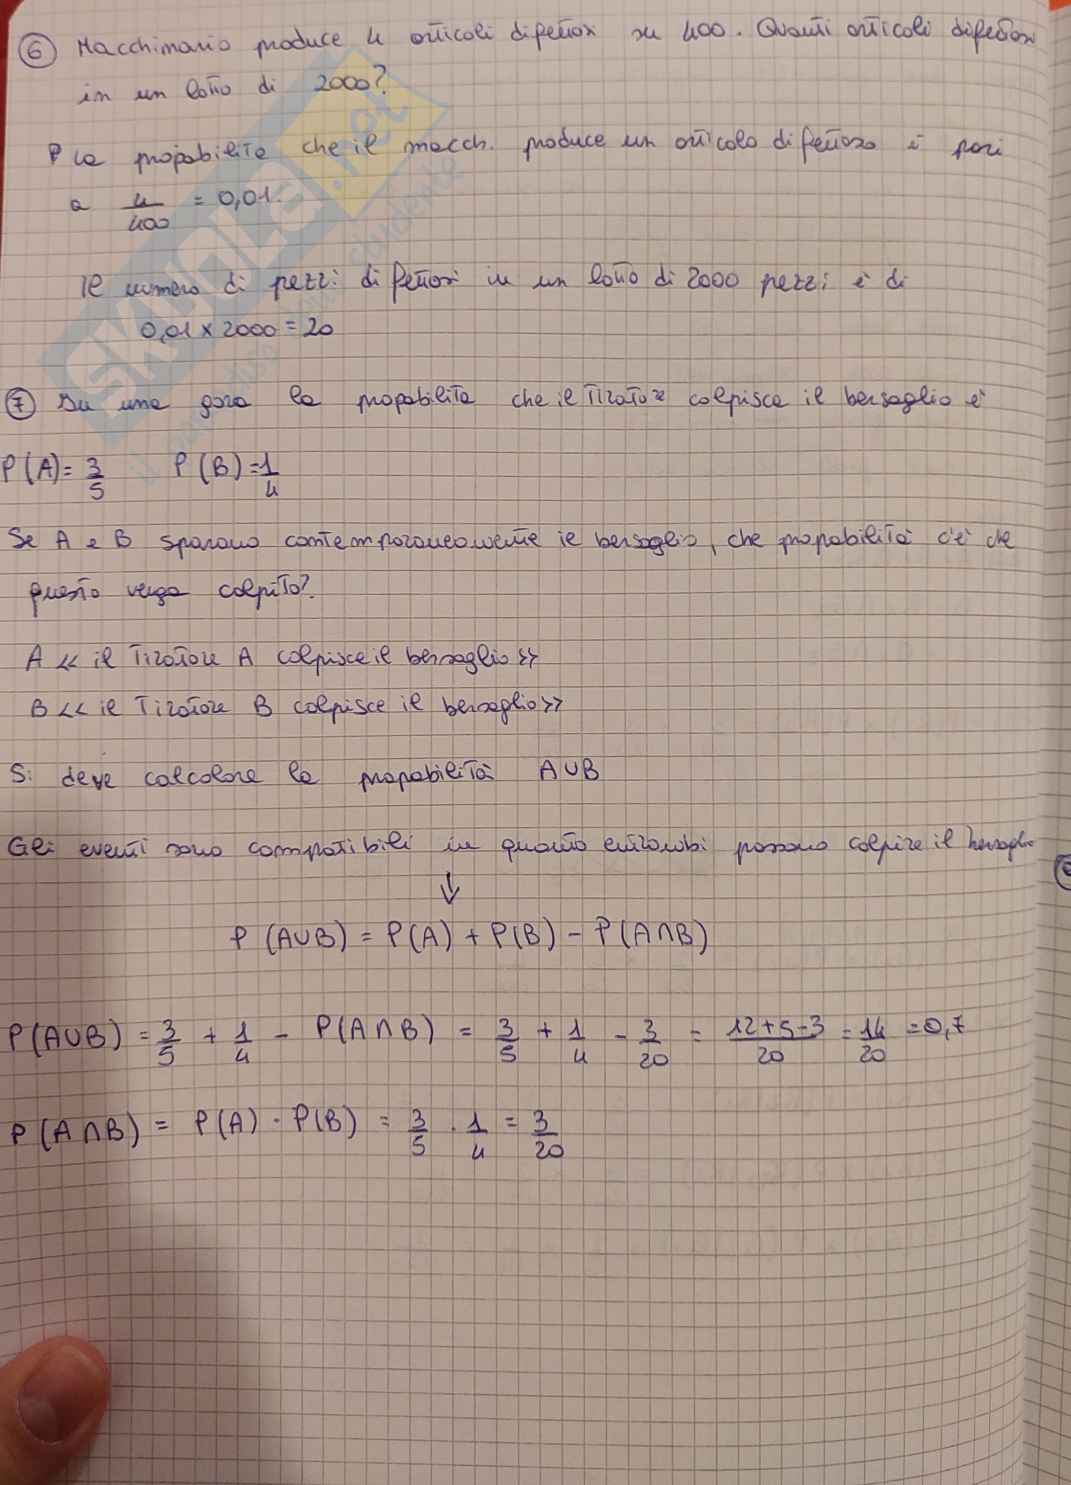 6 Macchinario produce 4 articoli difettosi su 400. Quanti articoli difettosi
in un lotto di 2000?
P la propabilità che il macch. produce un articolo difettoso è pari
a 4/400 = 0,01.
Il numero di pezzi difettosi in un lotto di 2000 pezzi è di
0,01 x 2000 = 20
7 Su una gara la propabilità che il tiratore colpisca il bersaglio è
P(A) = 3/5 P(B) = 1/4
Se A e B sparano contemporaneamente il bersaglio, che propabilità c'è che
questo venga colpito?
A << il tiratore A colpisce il bersaglio >>
B << il tiratore B colpisce il bersaglio >>
Si deve calcolare la propabilità A∪B
Gli eventi sono compatibili in quanto entrambi possono colpire il bersaglio
↓
P(A∪B) = P(A) + P(B) - P(A∩B)
P(A∪B) = 3/5 + 1/4 - P(A∩B) = 3/5 + 1/4 - 3/20 = 12+5-3/20 = 14/20 = 0,7
P(A∩B) = P(A) · P(B) = 3/5 · 1/4 = 3/20
SKUOLA.net